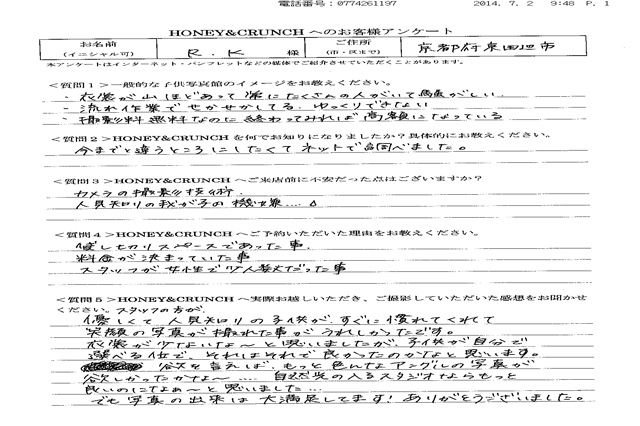 電話番号：0774261197 2014. 7. 2 9:48 P. 1
HONEY&CRUNCH へのお客様アンケート
お名前
(イニシャル可)
R. K 様
ご住所
(市・区まで)
京都府京田辺市
本アンケートはインターネット・パンフレットなどの媒体でご紹介させていただくことがあります。
<質問１>一般的な子供写真館のイメージをお教えください。
・衣装が山ほどあって常にたくさんの人がいて騒がしい.
・流れ作業でせかせかしてる. ゆっくりできない
・撮影料無料なのに終わってみれば高額になっている
<質問２>HONEY&CRUNCH を何でお知りになりましたか？具体的にお教えください。
今までと違うところにしたくてネットで調べました。
<質問３>HONEY&CRUNCH へご来店前に不安だった点はございますか？
カメラの撮影技術.
人見知りの我が子の機嫌....
<質問４>HONEY&CRUNCH へご予約いただいた理由をお教えください。
貸し切りスペースであった事.
料金が決まっていた事
スタッフが女性で少人数だった事
<質問５>HONEY&CRUNCH へ実際お越しいただき、ご撮影していただいた感想をお聞かせ
ください。スタッフの方が、
優しくて人見知りの子供がすぐに慣れてくれて
笑顔の写真が撮れた事がうれしかったです。
衣装が少ないな～と思いましたが、子供が自分で
選べる位で、それはそれで良かったのかなと思います。
欲を言えば、もっと色んなアングルの写真が
欲しかったかな～.... 自然光の入るスタジオならもっと
良いのになぁ～と思いました...
でも写真の出来は大満足してます! ありがとうございました。